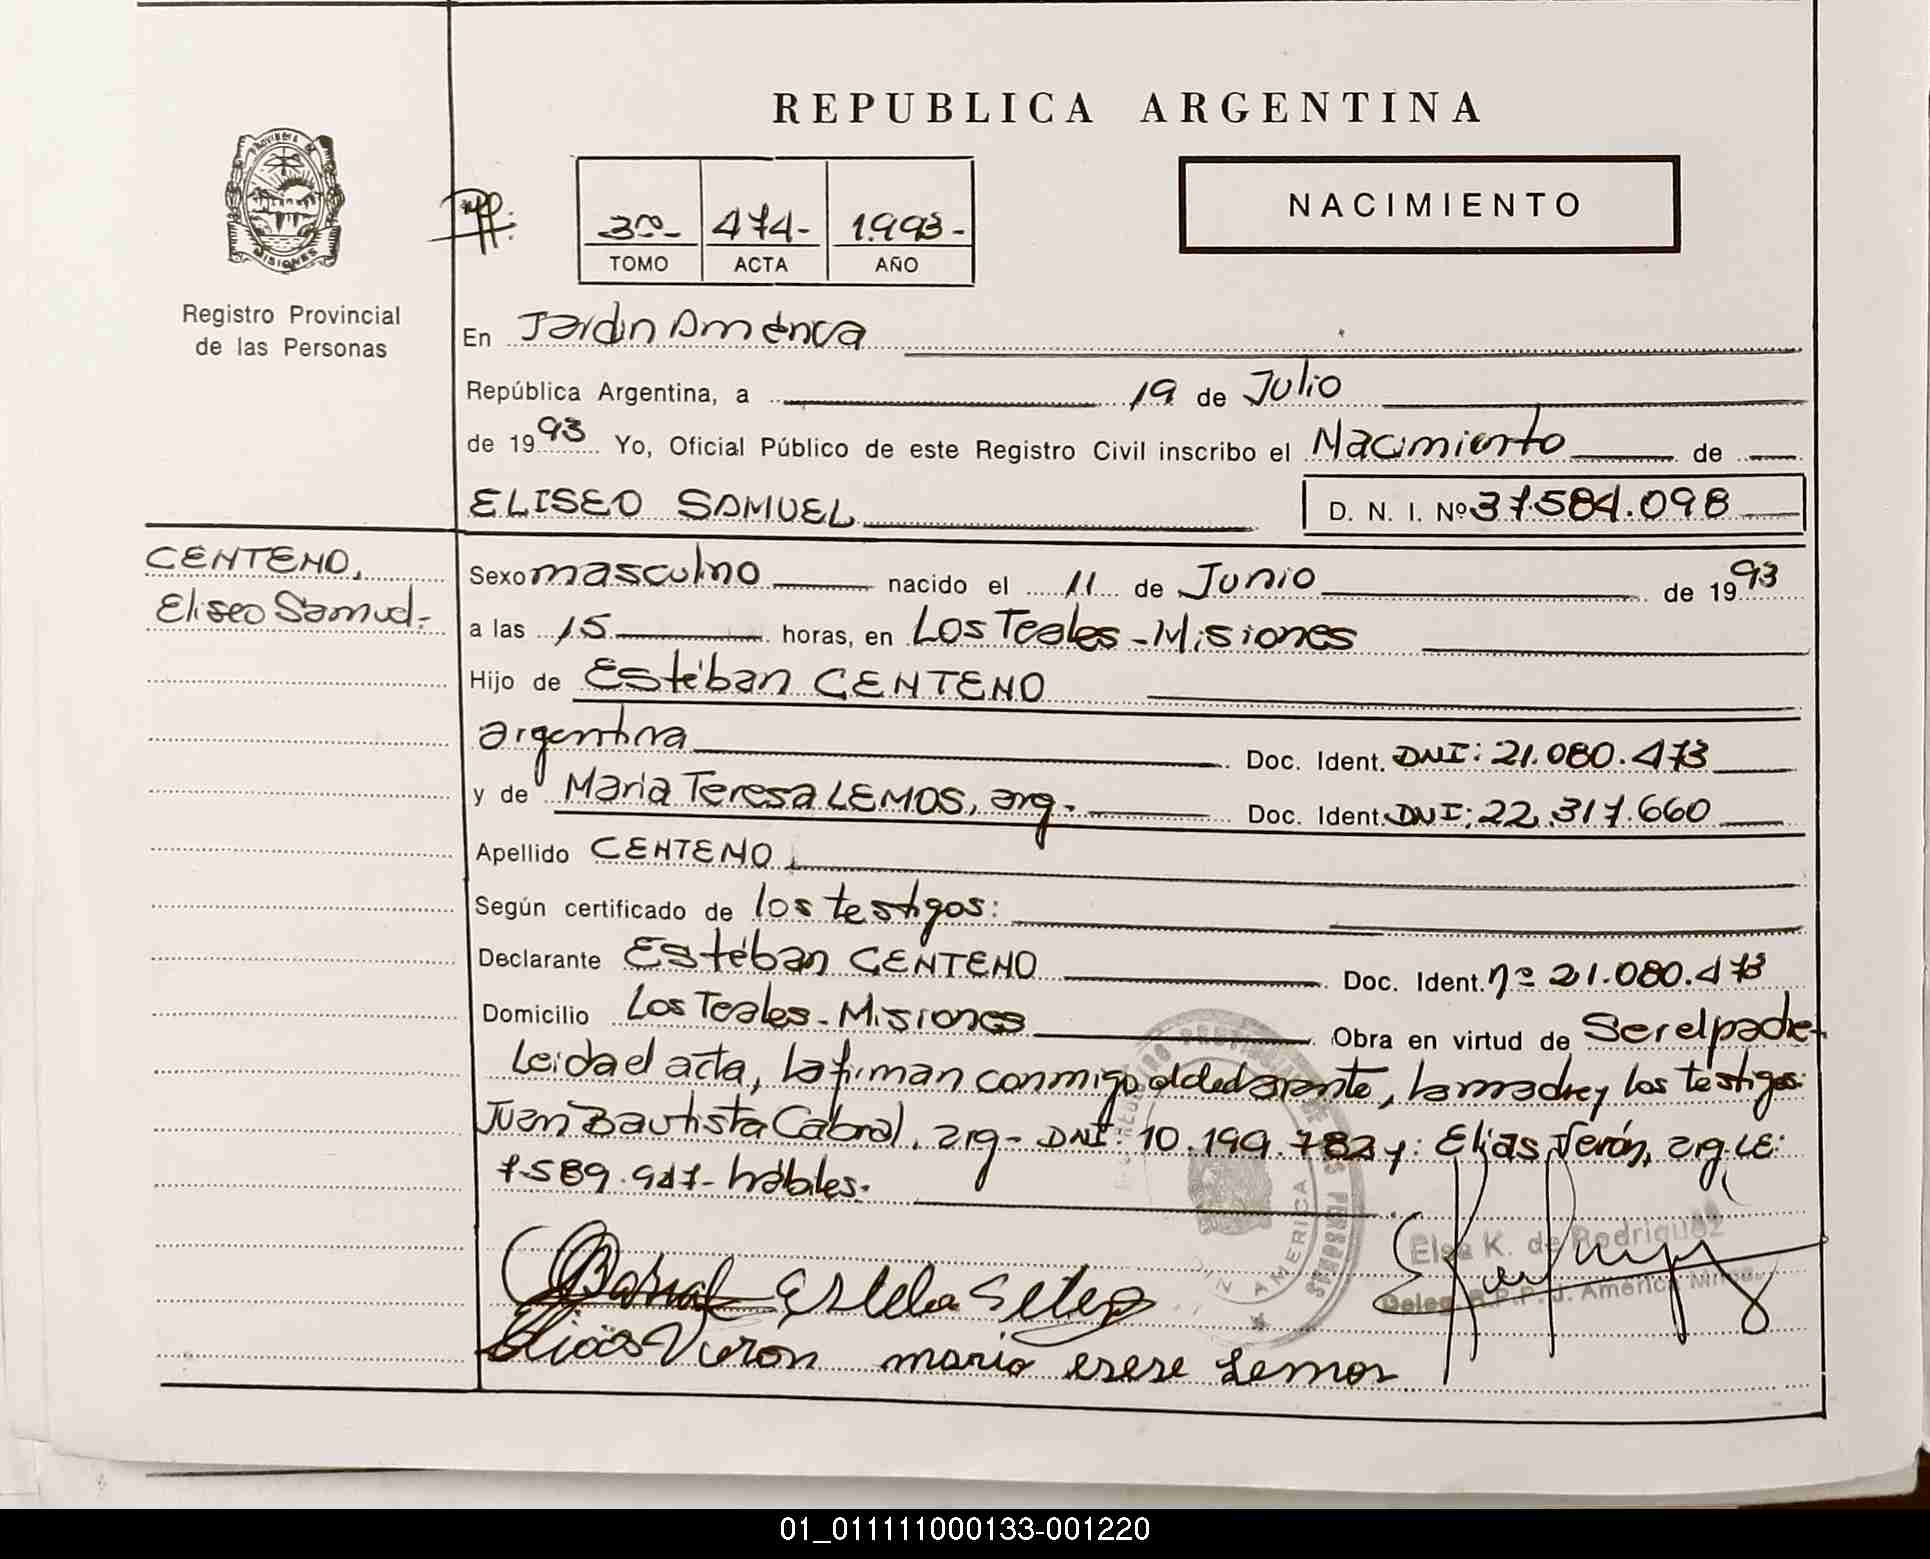 REPUBLICA ARGENTINA
PROVINCIA DE
MISIONES
Registro Provincial
de las Personas
NACIMIENTO
3ro- 474- 1.993-
TOMO ACTA AÑO
En Jardin América
República Argentina, a 19 de Julio
de 1993 Yo, Oficial Público de este Registro Civil inscribo el Nacimiento de
ELISEO SAMUEL D. N. I. Nº 37.584.098
CENTENO,
Eliseo Samuel-
Sexo masculino nacido el 11 de Junio de 1993
a las 15 horas, en Los Teales - Misiones
Hijo de Estéban CENTENO
argentina Doc. Ident. DNI: 21.080.473
y de Maria Teresa LEMOS, arg.- Doc. Ident. DNI: 22.317.660
Apellido CENTENO
Según certificado de los testigos:
Declarante Estéban CENTENO Doc. Ident. nº 21.080.473
Domicilio Los Teales - Misiones Obra en virtud de Ser el padre-
Leida el acta, la firman conmigo el declarante, la madre y los testigos:
Juan Bautista Cabral, arg- DNI: 10.199.782 y: Elias Verón, arg. LE:
7.589.947- hábiles.
Elsa K. de Rodriguez
Elias Veron maria erese Lemos
01_011111000133-001220